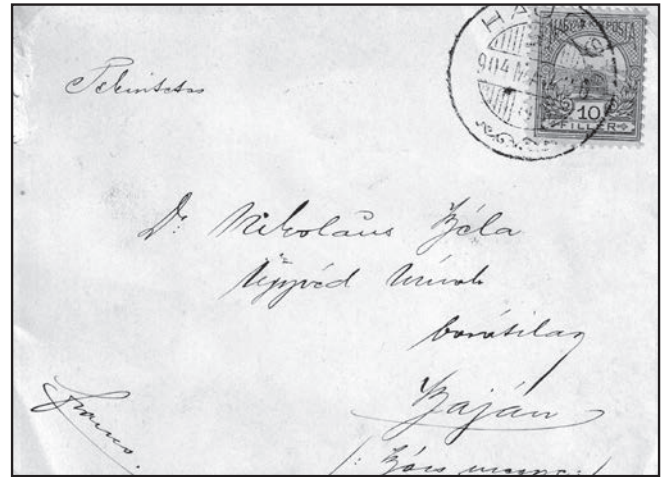 MAGYAR KIR. POSTA
904 MÁR
10
FILLÉR
Tekintetes
Dr. Nikolaus Béla
Ügyvéd Úrnak
barátilag
Baján
/: Bács megye :/